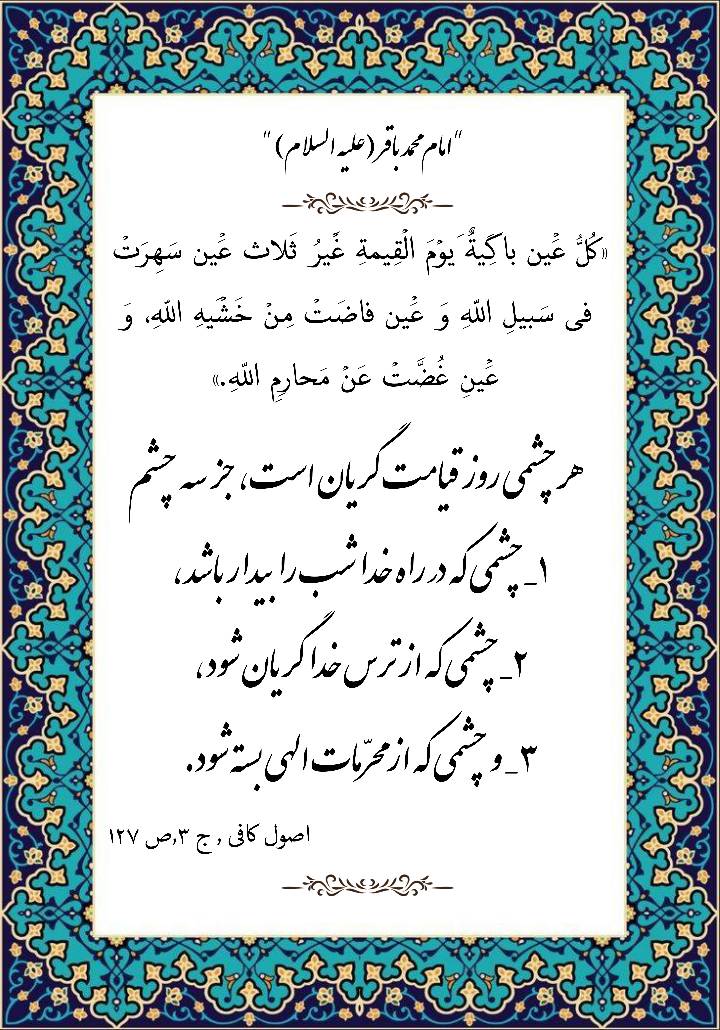 "امام محمد باقر (علیه السلام) "
«کُلُّ عَیْن باکِیةٌ یَوْمَ الْقِیمةِ غَیرُ ثَلاث عَیْن سَهِرَتْ
فی سَبیلِ اللّهِ وَ عَیْن فاضَتْ مِنْ خَشْیهِ اللّهِ، وَ
عَیْنِ غُضَّتْ عَنْ مَحارِمِ اللّهِ.»
هر چشمی روز قیامت گریان است، جز سه چشم
۱_ چشمی که در راه خدا شب را بیدار باشد،
۲_ چشمی که از ترس خدا گریان شود،
۳_ و چشمی که از محرّمات الهی بسته شود.
اصول کافی , ج ۳,ص ۱۲۷